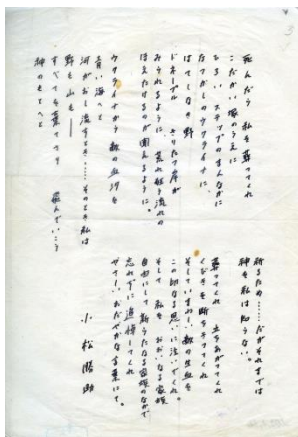 死んだら 私を葬ってくれ
こだかい塚のうえに
ひろい ステップのまんなかに
なつかしのウクライナに。
はてしなき野
ドネープル きりたつ岸が
みうれるように 荒れ狂う流れの
ほえたけるのが聞えるように。
ウクライナから 敵の血汐を
青い海へと
河がおし流すとき……そのとき私は
野も山も――
すべてを棄てさり 飛んでいこう
神のもとへと
祈るため……だがそれまでは
神を私は知らない。
葬ってくれ 立ちあがってくれ
くびきを断ちきってくれ
そしていまわしい敵の生血を
この切なる思いに注いでくれ。
そして 私を おおいなる家族
自由にして新らたなる家族のなかで
忘れずに追憶してくれ
やさしい おだやかな言葉にて。
小松勝助